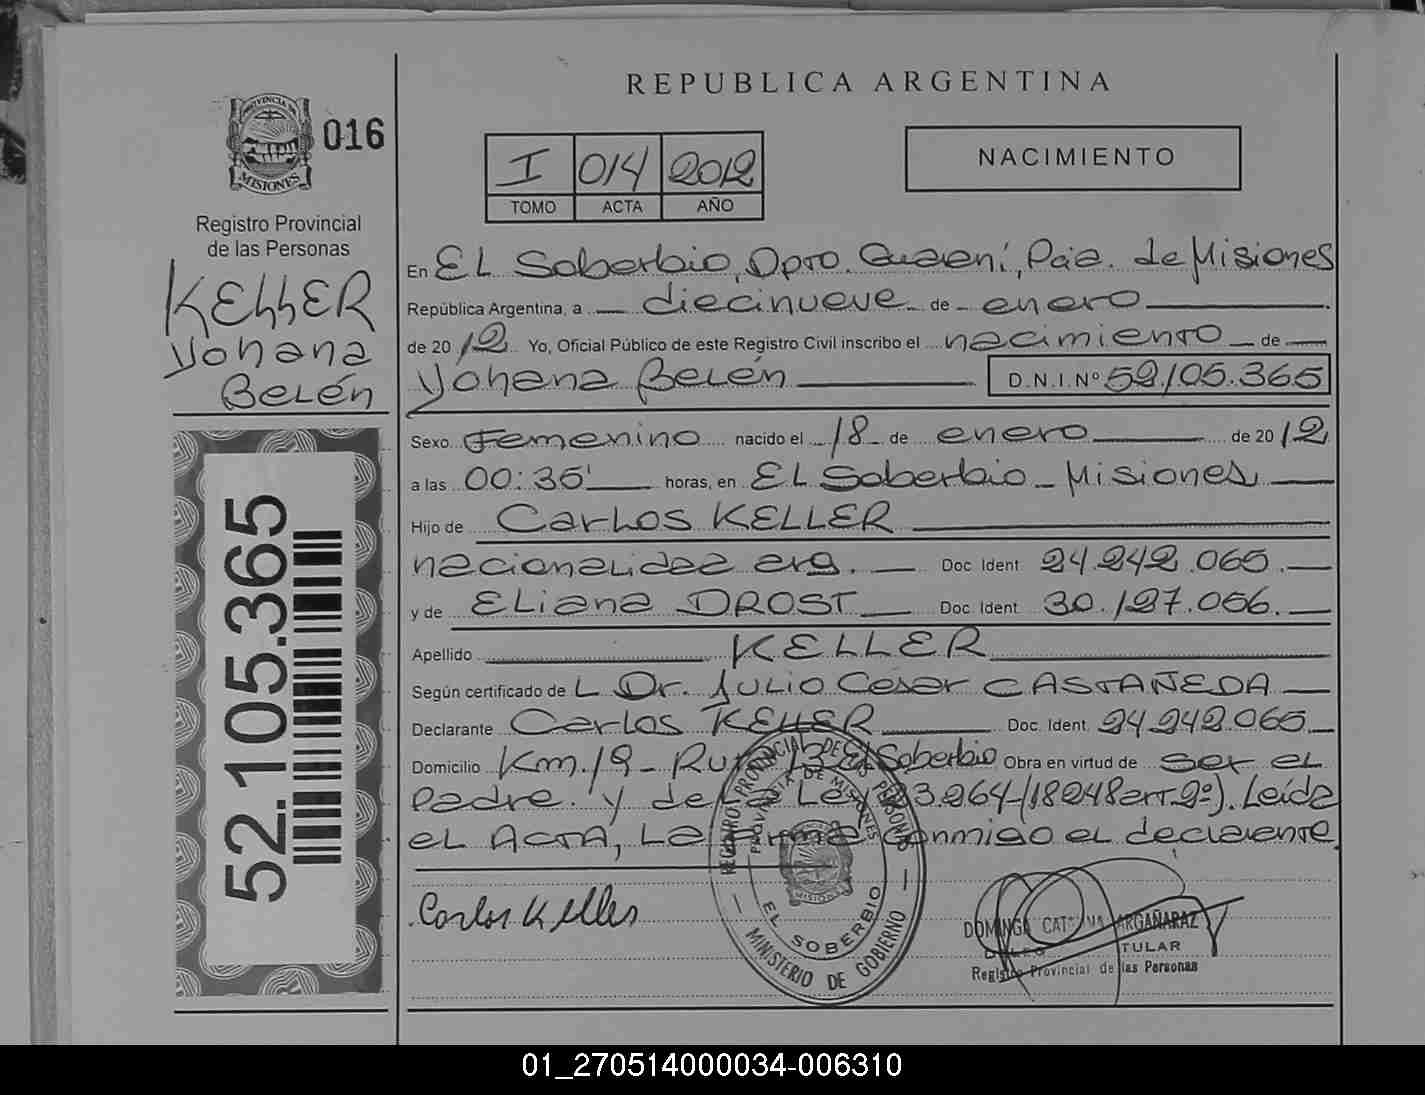 REPUBLICA ARGENTINA
PROVINCIA DE
MISIONES
016
Registro Provincial
de las Personas
KELLER
Yohana
Belén
52.105.365
I 014 2012
TOMO ACTA AÑO
NACIMIENTO
En EL Soberbio, Dpto. Guaraní, Pcia. de Misiones
República Argentina, a diecinueve de enero
de 2012 Yo, Oficial Público de este Registro Civil inscribo el nacimiento de
Yohana Belén D.N.I.Nº 52.105.365
Sexo Femenino nacido el 18 de enero de 2012
a las 00:35' horas, en EL Soberbio - Misiones
Hijo de Carlos KELLER
nacionalidad arg. Doc Ident 24.242.065.
y de Eliana DROST Doc Ident 30.197.056.
Apellido KELLER
Según certificado de L Dr. Julio Cesar CASTAÑEDA
Declarante Carlos KELLER Doc. Ident 24.242.065
Domicilio Km.19 - Ruta 13 El Soberbio Obra en virtud de ser el
padre. y de la Ley 23.264-(18248 art 2º). Leída
el Acta, La firma conmigo el declarante.
Carlos Keller
REGISTRO PROVINCIAL DE LAS PERSONAS
PROVINCIA DE MISIONES
EL SOBERBIO
MINISTERIO DE GOBIERNO
DOMINGA CATALINA ARGAÑARAZ
TITULAR
Registro Provincial de las Personas
01_270514000034-006310